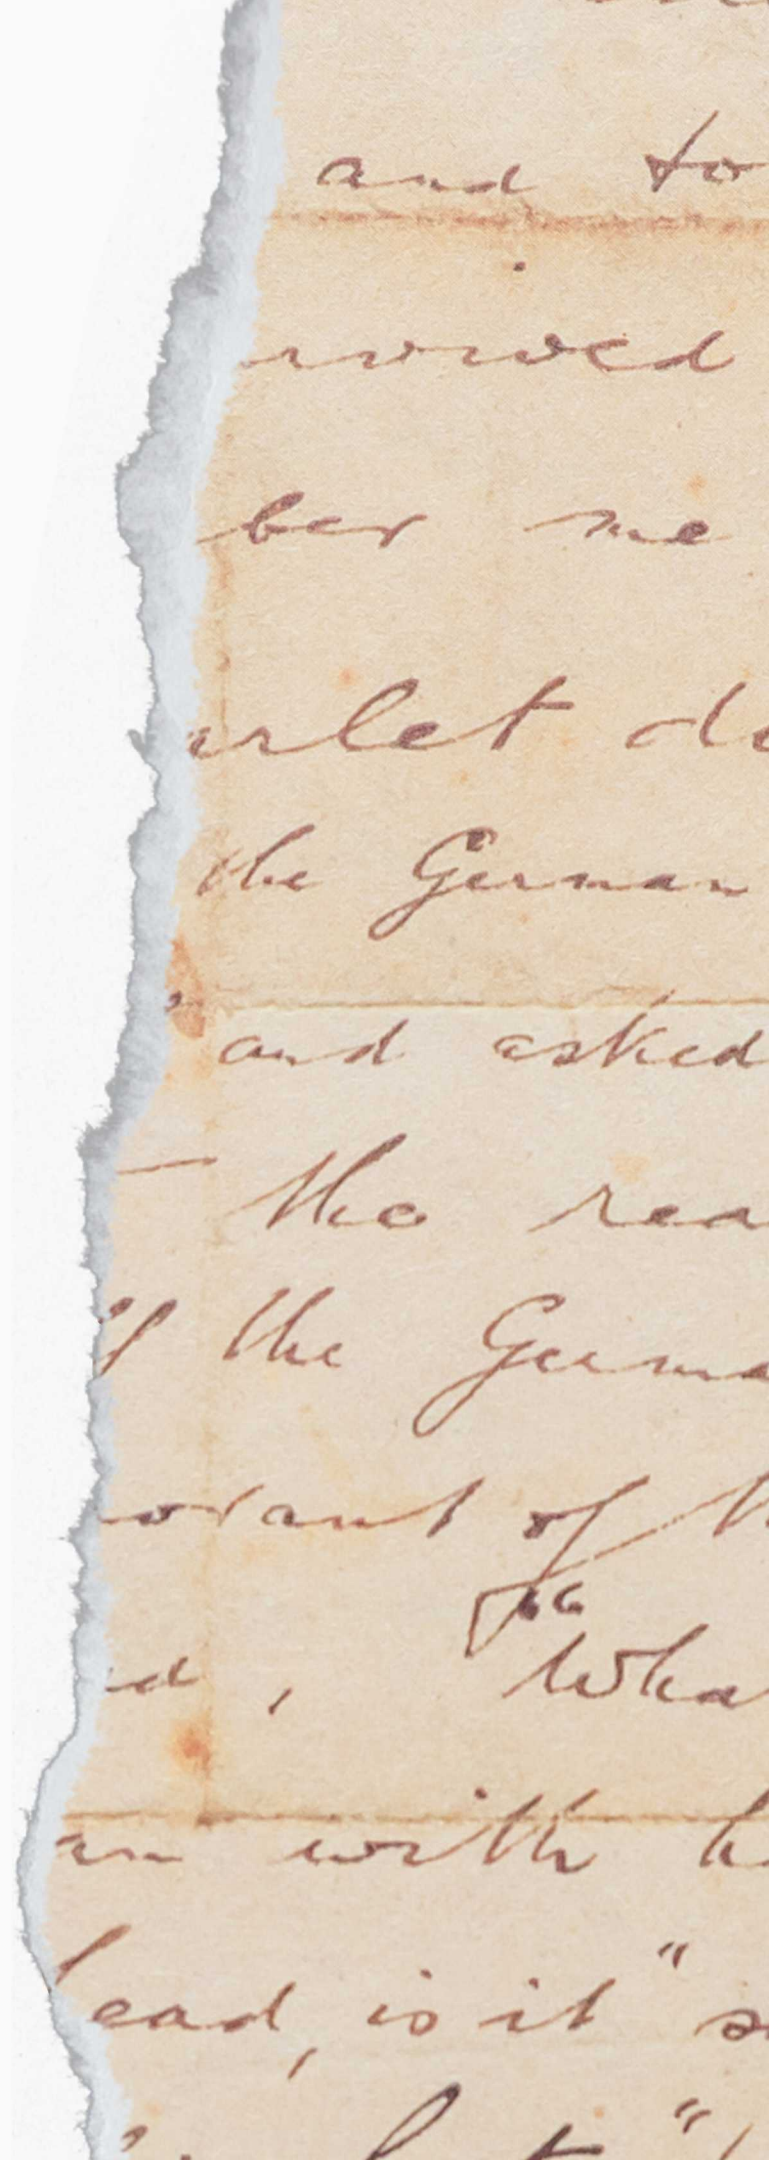 and to
rowed
ber me
arlet do
the German
and asked
— the rea
of the Germa
norant of th
ed, "Wha
an with h
head, is it" s